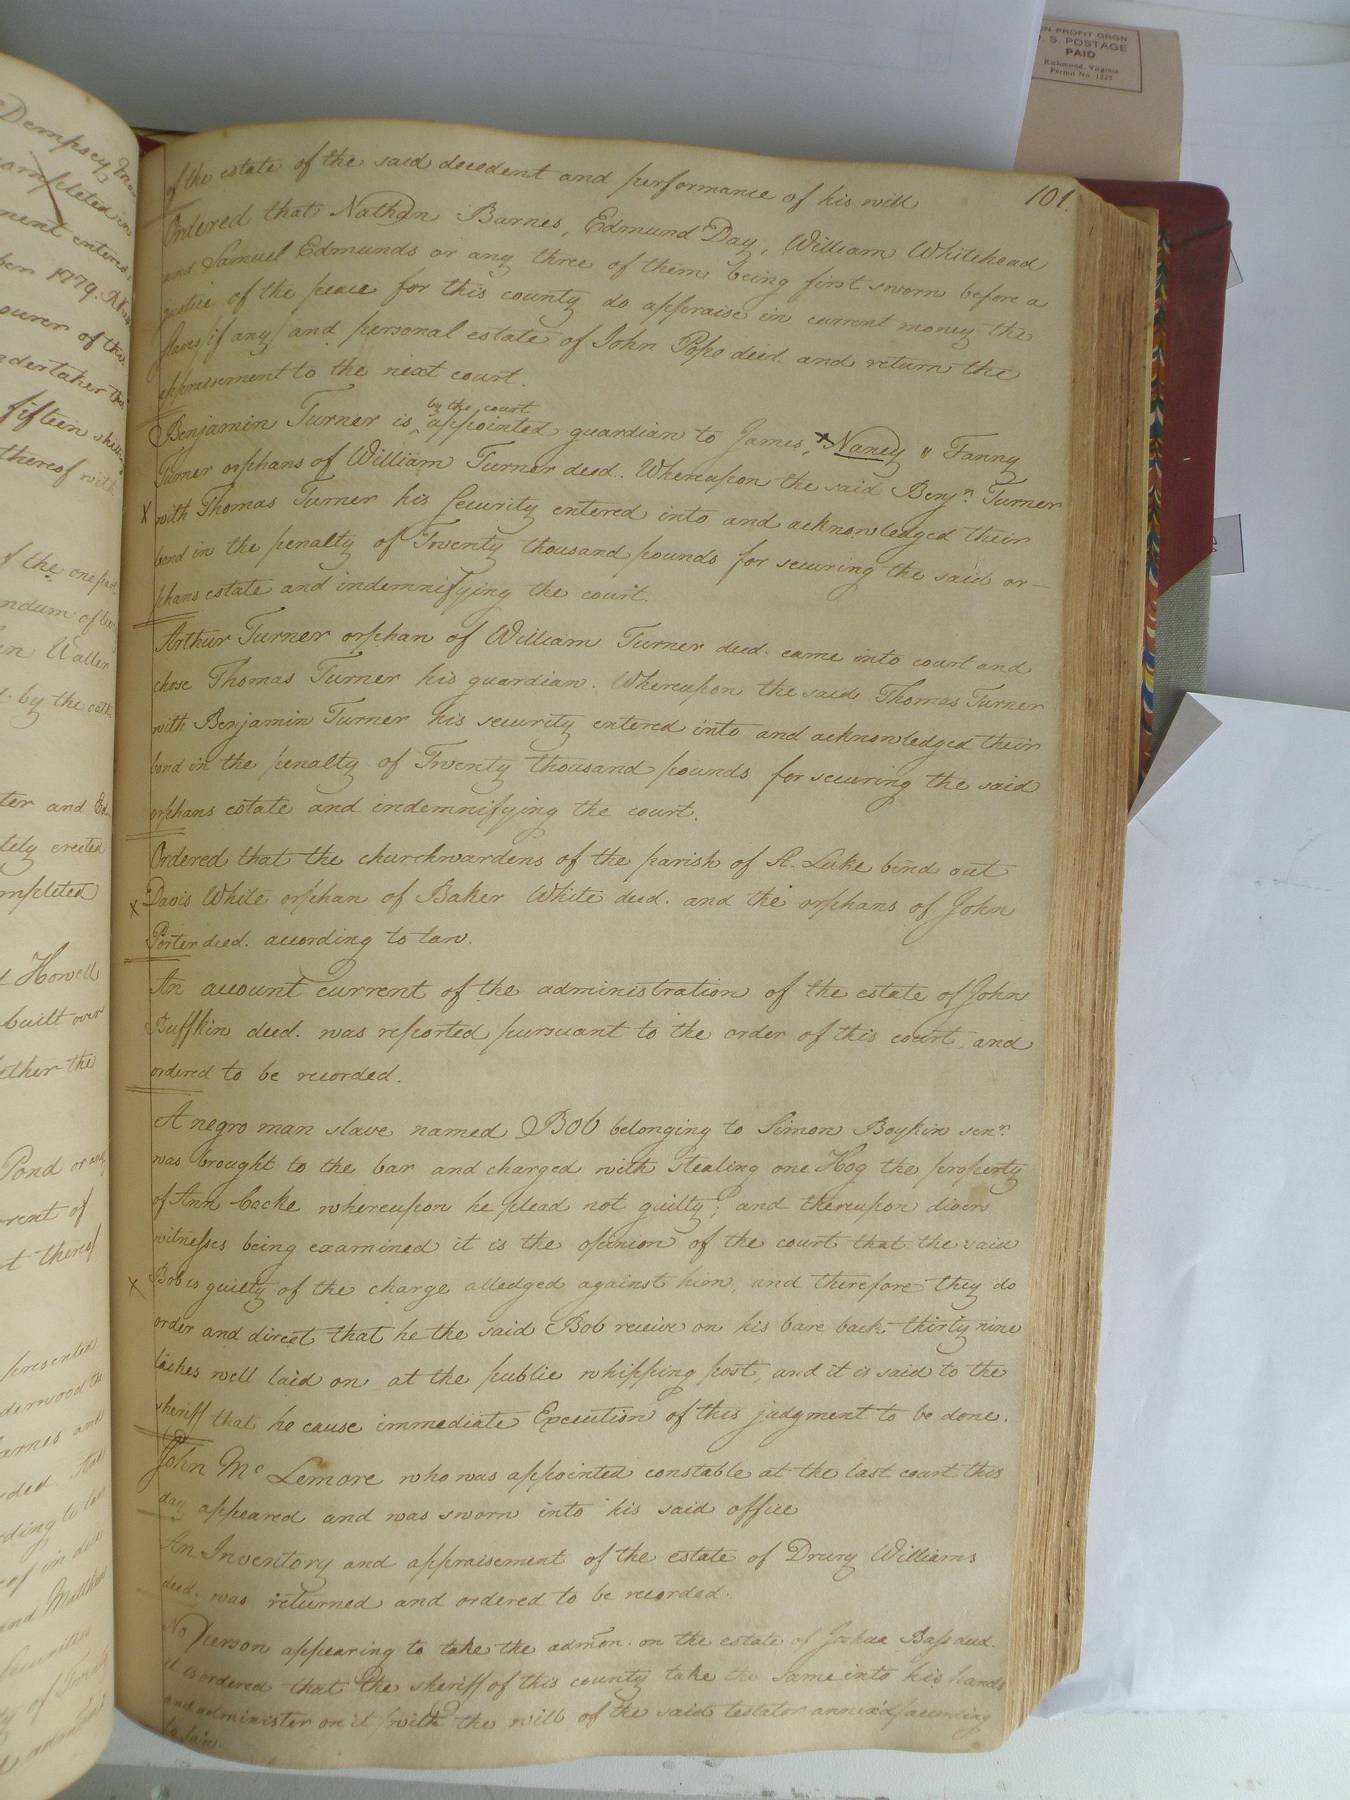 NON-PROFIT ORGN
U. S. POSTAGE
PAID
Richmond, Virginia
Permit No. 1225
101.
of the estate of the said decedent and performance of his will
Ordered that Nathan Barnes, Edmund Day, William Whitehead
and Samuel Edmunds or any three of them being first sworn before a
justice of the peace for this county do appraise in current money the
slaves if any and personal estate of John Pope decd. and return the
appraisement to the next court.
Benjamin Turner is by the court appointed guardian to James, Nancy " Fanny
Turner orphans of William Turner decd. Whereupon the said Benjn. Turner
x with Thomas Turner his Security entered into and acknowledged their
bond in the penalty of Twenty thousand pounds for securing the said or-
phans estate and indemnifying the court.
Arthur Turner orphan of William Turner decd. came into court and
chose Thomas Turner his guardian. Whereupon the said Thomas Turner
with Benjamin Turner his security entered into and acknowledged their
bond in the penalty of Twenty thousand pounds for securing the said
orphans estate and indemnifying the court.
Ordered that the churchwardens of the parish of St. Luke bind out
x Davis White orphan of Baker White decd. and the orphans of John
Porter decd. according to law.
An account current of the administration of the estate of John
Buffkin decd. was reported pursuant to the order of this court and
ordered to be recorded.
A negro man slave named Bob belonging to Simon Boykin senr.
was brought to the bar and charged with stealing one Hog the property
of Ann Cocke whereupon he plead not guilty; and thereupon divers
witnesses being examined it is the opinion of the court that the said
x Bob is guilty of the charge alledged against him, and therefore they do
order and direct that he the said Bob receive on his bare back thirty nine
lashes well laid on at the public whipping post, and it is said to the
sheriff that he cause immediate Execution of this judgment to be done.
John Mc Lemore who was appointed constable at the last court this
day appeared and was sworn into his said office
An Inventory and appraisement of the estate of Drury Williams
decd. was returned and ordered to be recorded.
No person appearing to take the admon. on the estate of Joshua Bass decd.
it is ordered that the sheriff of this county take the same into his hands
and administer on it with the will of the said testator annex'd according
to law.
Dempsey
completed in
ment entered
ber 1779.
ourer of the
fifteen
thereof with
of the one part
by the oath
ter and
tely erected
ompleted
Howell
built over
ether the
Pond or
rent of
thereof
presented
derwood the
arnes and
ding to law
and